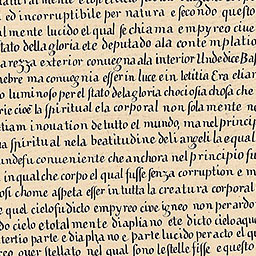 ed incorruptibile per natura e secondo questo
almente lucido el qual se chiama empyreo ciue
stato della gloria et e deputado ala contemplatio
arezza exterior conuegna ala interior Unde dice Bas
nebre ma conuegnia esser in luce e in letitia Era eliam
o luminoso per el stato dela gloria chocio sia chosa che
rie cioè la spiritual ela corporal non sola mente ne
etiam inouation de tutto el mundo, ma nel principi
ua spiritual nela beatitudine deli angeli la equal
unde fu conueniente che anchora nel principio fu
inqualche corpo el qual fusse senza corruption e m
osi chome aspeta esser in tutta la creatura corporal
e quel cielo fu dicto empyreo ciue igneo non per ardo
do cielo e totalmente diaphano et e dicto cielo aque
tertio parte e diaphano e parte lucido per acto el qu
reo ouer stellato nel qual sono le stelle fisse e questo